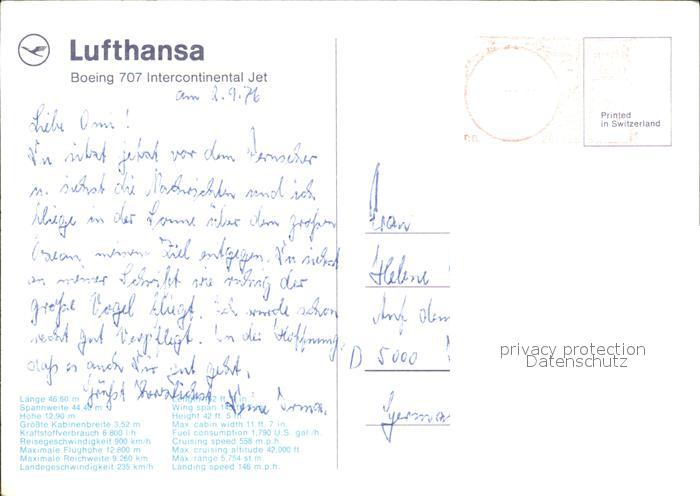 Lufthansa
Boeing 707 Intercontinental Jet
am 2.9.76
Liebe Omi!
Du sitzt jetzt vor dem Fernseher
u. siehst die Nachrichten und ich
fliege in der Sonne über dem großen
Ozean meinem Ziel entgegen. Du siehst
an meiner Schrift wie ruhig der
große Vogel fliegt. Ich wurde schon
recht gut verpflegt. In der Hoffnung,
daß es auch Dir gut geht,
grüßt herzlichst Deine Irma.
Printed
in Switzerland
P.P.
Frau
Helene
Auf dem
D 5000
Germa
privacy protection
Datenschutz
Länge 46,60 m
Spannweite 44,40 m
Höhe 12,90 m
Größte Kabinenbreite 3,52 m
Kraftstoffverbrauch 6 800 l/h
Reisegeschwindigkeit 900 km/h
Maximale Flughöhe 12.800 m
Maximale Reichweite 9.260 km
Landegeschwindigkeit 235 km/h
Wing span
Height 42 ft. 5 in.
Max. cabin width 11 ft. 7 in.
Fuel consumption 1,790 U.S. gal./h.
Cruising speed 558 m.p.h.
Max. cruising altitude 42,000 ft.
Max. range 5,754 st.m.
Landing speed 146 m.p.h.